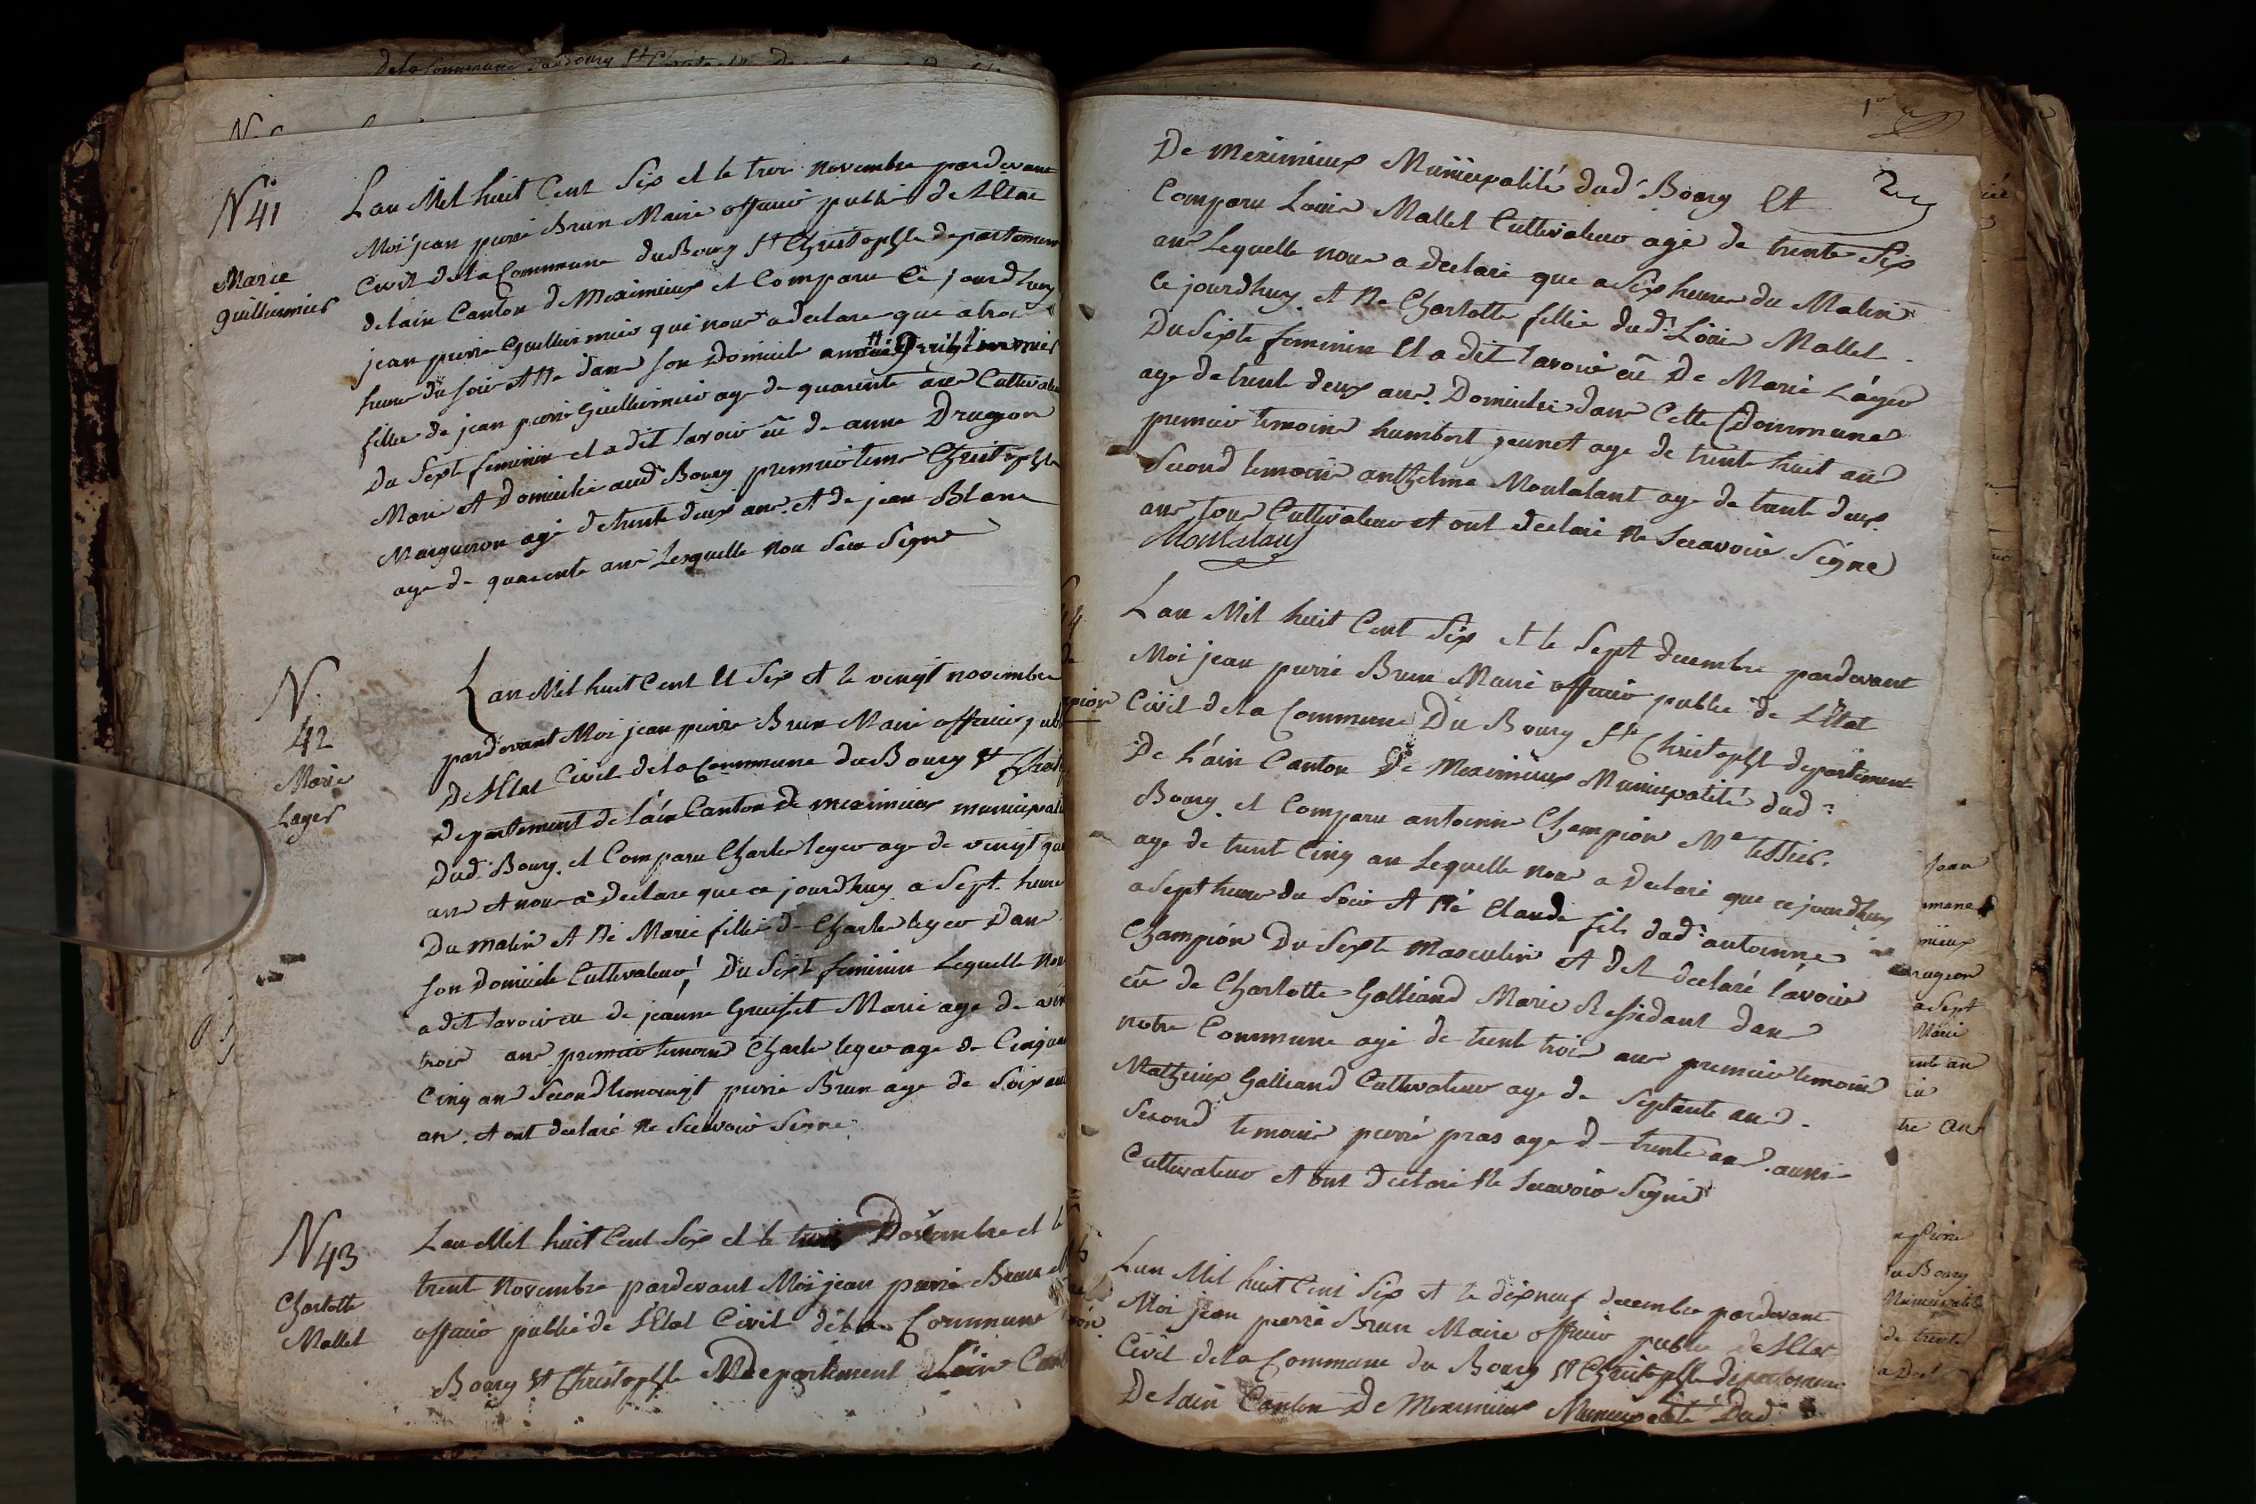 N 41
Marie
guilliermier
Lan Mil huit Cent Six et le trois novembre pardevant
Moi jean pierre Brun Maire officier public de l'Etat
Civil de la Commune du Bourg St Christophle departement
de lain Canton de Meximieux et Comparu Ce jourdhuy
jean pierre Guilliermier qui nous a declare que a trois
heure du soir et Ne dans son Domicile
fille de jean pierre Guilliermier age de quarente ans Cultivateur
Du Sexte feminin et a dit lavoir eû de anne Drugeon
Marie et Domicilie aud Bourg premier temoin Christophle
Margueron agé de trente deux ans et de jean Blanc
age de quarente ans Lesquelle non Seu Signe
N.
42
Marie
Lager
Lan Mil huit Cent et Six et le vingt novembre
pardevant Moi jean pierre Brun Maire officier pub
De lEtat Civil de la Commune du Bourg St Christ
departement de láin Canton de meximieux municipali
Dud. Bourg. et Comparu Charle leger age de vingt qua
ans et nous a declare que ce jourdhuy a Sept heure
Du matin et Né Marie fille de Charle leger Dans
son Domicile Cultivateur, Du Sexte feminin Lequelle nou
a dit lavoir eu de jeanne Marie age de vin
trois ans premier temoins Charle leger age de Cinquan
Cinq ans Second temoingt pierre Brun age de Soixan
an. et ont declaré Ne Scavoir Signe
N 43
Charlotte
Mallet
Lan Mil huit Cent Six et le trois Desembre et le
trent Novembre pardevant Moi jean pierre Brun
officier public de l'Etat Civil de la Commune
Bourg St Christophle Departement Lain Cant
De Meximieux Municipalité dud. Bourg Et
Comparu Louis Mallet Cultivateur agé de trente Six
ans Lequelle nous a declaré que a Six heure du Matin
Ce jourdhuy et Ne Charlotte fillie dud. Loüis Mallet
Du Sexte feminin Et a dit l'avoir eû De Marie Láger
age de trent deux ans. Domicilie dans Cette Commune
premier temoins humbert jeunet age de trente huit ans
Second temoins anthelme Montalant age de trente deux
ans tous Cultivateur et ont declare Ne Scavoir Signe
Montalant
Lan Mil huit Cent Six et le Sept decembre pardevant
Moi jean pierre Brun Maire officier public de L'Etat
Civil de la Commune Du Bourg St Christophle departement
De L'ain Canton De Meximieux Municipalité dud.
Bourg. et Comparu antoinne Champion Me tessier.
age de trent Cinq an Lequelle nous a Declaré que ce jourdhuy
a Sept heure du Soir et Né Claude fils dud. antoinne
Champion Du Sexte Masculin et a declaré l'avoir
eû de Charlotte Galliand Marie Residant dans
notre Commune agé de trent trois ans premier temoin
Mathieux Galliand Cultivateur age de Septante ans
Second temoins pierre pras age de trente ans. aussi
Cultivateur et ont declare Ne Scavoir Signé
Lan Mil huit Cent Six et le dixneuf decembre pardevant
Moi jean pierre Brun Maire officier public de lEtat
Civil de la Commune du Bourg St Christophle departement
De lain Canton De Meximieux Municipalité Dud